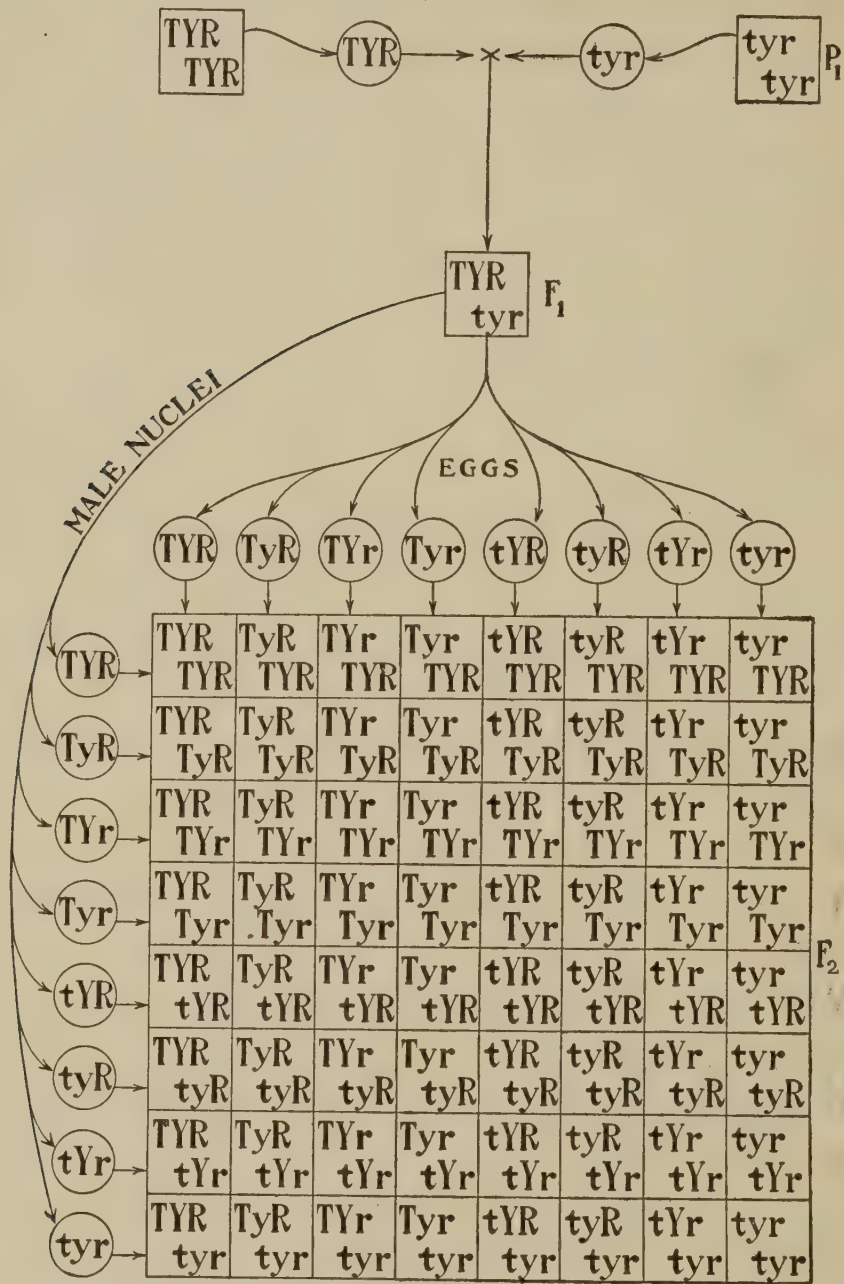 TYR
TYR
TYR
×
tyr
tyr
tyr
P₁
TYR
tyr
F₁
MALE NUCLEI
EGGS
TYR TyR TYr Tyr tYR tyR tYr tyr
TYR TyR TYr Tyr tYR tyR tYr tyr
TYR TYR TYR TYR TYR TYR TYR TYR TYR
TYR TyR TYr Tyr tYR tyR tYr tyr
TyR TyR TyR TyR TyR TyR TyR TyR TyR
TYR TyR TYr Tyr tYR tyR tYr tyr
TYr TYr TYr TYr TYr TYr TYr TYr TYr
TYR TyR TYr Tyr tYR tyR tYr tyr
Tyr Tyr Tyr Tyr Tyr Tyr Tyr Tyr Tyr
F₂
TYR TyR TYr Tyr tYR tyR tYr tyr
tYR tYR tYR tYR tYR tYR tYR tYR tYR
TYR TyR TYr Tyr tYR tyR tYr tyr
tyR tyR tyR tyR tyR tyR tyR tyR tyR
TYR TyR TYr Tyr tYR tyR tYr tyr
tYr tYr tYr tYr tYr tYr tYr tYr tYr
TYR TyR TYr Tyr tYR tyR tYr tyr
tyr tyr tyr tyr tyr tyr tyr tyr tyr